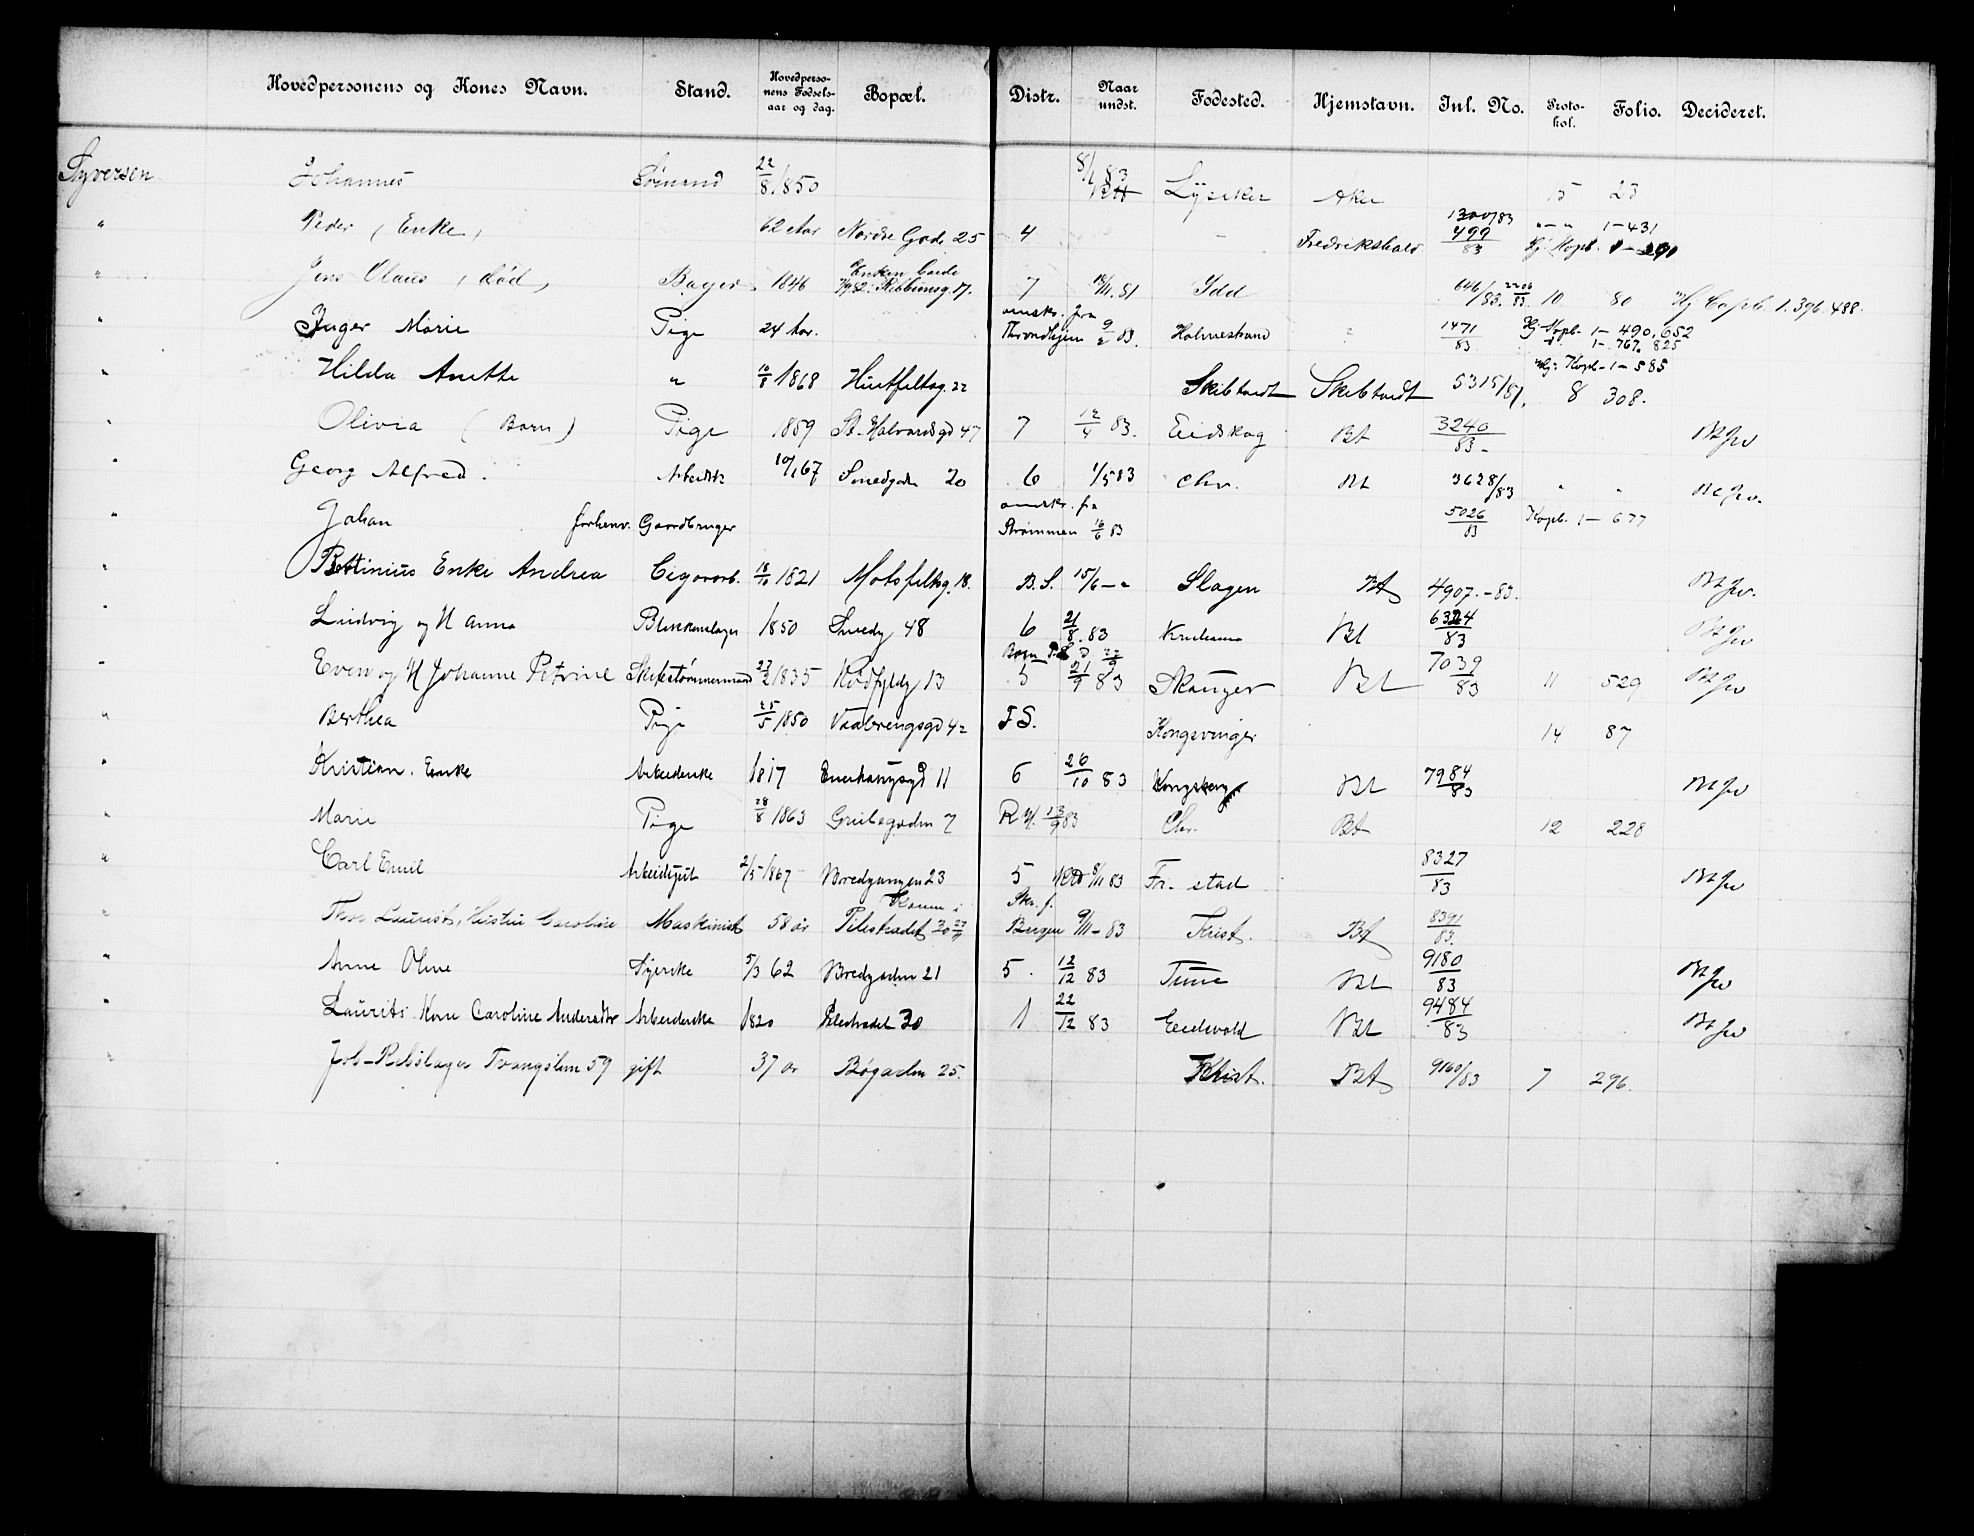 Hovedpersonens og Kones Navn. Stand. Hovedpersonens Fødselsaar og dag. Bopæl. Distr. Naar undst. Fødested. Hjemstavn. Inl. No. Protokol. Folio. Decideret.
Syversen Johannes Sømand 22/8 1850 8/1 83 Lysaker Aker 15 23
" Peder (Enke) 62 Aar Nordre Gade 25 4 - Fredrikshald 1300/83 499/83 " - " 1-431 Hj. Kopb.
" Jens Olaus (død) Bager 1846 Enken 7 18/11.81 Idd 646/83. 2206/83 10 80 Hj Copb. 1. 396. 488.
" Inger Marie Pige 24 Aar. ønskr. fra Throndhjem 9/2 83. Holmestrand " 1471/83 Hj Kopb. 1- 490, 652 1- 767, 825
" Hilda Anette " 10/8 1868 Huitfeltsg. 22 Skibtvedt Skibtvedt 5315/81. Hj: Kopb. 1-585 8 308.
" Olivia (Barn) Pige 1859 St. Halvardsgd 47 7 12/4 83. Eidskog Bt 3240/83 Bt Jw
" Georg Alfred. Arbeider 10/1 67 Smedgaden 20 6 1/5 83 Chr. Bt 3628/83 " " Bt Jw.
" Johan forhenv. Gaardbruger ønskr. fra Strømmen 16/6 83 5026/83 Kopb. 1- 677
" Bettinius Enke Andrea Cigararb. 18/10 1821 Motzfeltsg. 18. B.S. 15/6 - " Slagen Bt 4907.-83. Bt Jw.
" Ludvig og H Anna Blikkenslager 1850 Smedg 48 6 21/8.83 Bt 6324/83 Bt Jw
" Even og H Johanne Petrine Skibstømmermand 27/2 1835 Nordfyldg 13 5 21/9 83 Skauger Bt 7039/83 11 529 Bt Jw
" Berthea Pige 25/5 1850 Vaalerengsgd 42 F S. Kongsvinger 14 87
" Kristian. Enke Arbeiderske 1817 Enerhaugsgd 11 6 26/10 83 Kongsberg Bt 7984/83 Bt Jw
" Marie Pige 28/8 1863 Grübegaden 7 R.H. 13/9 83 Chr. Bt 12 228
" Carl Emil Arbeidsgut 2/5 1867 Bredgangen 23 5 8/11 83 Fr. stad 8327/83 Bt Jw
" Thor Laurits, Hustru Caroline Maskinist 58 år Pilestrædet 30 Skr. f. Bergen 9/11-83 Krist. Bt 8391/83.
" Anne Oline Syerske 5/3 62 Bredgaden 21 5. 12/12 83 Tune Bt 9180/83 Bt Jw
" Laurits Kone Caroline Andersdtr Arbeiderske 1820 Pilestrædet 30 1 22/12 83 Eidsvold Bt 9484/83 Bt Jw
" Joh-Rebslager Tvangslem 59 gift 37 år Bøgaden 25. Krist. Bt 9160/83 7 296.